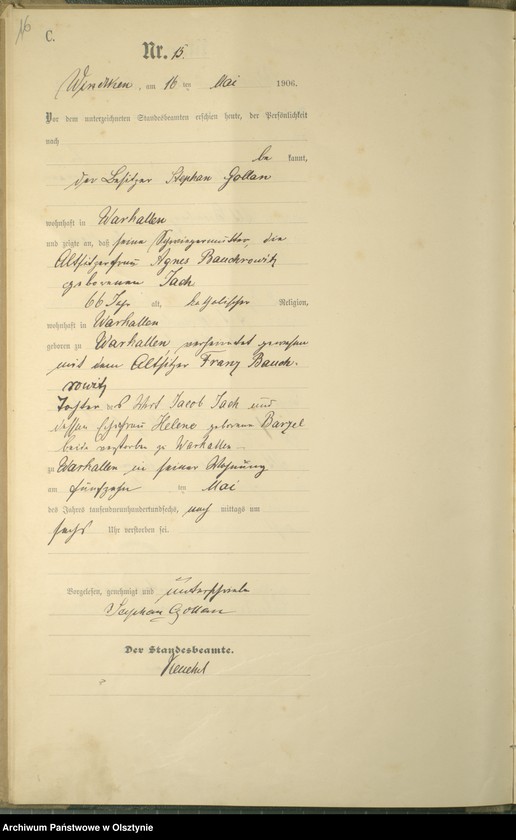 16
C.
Nr. 13.
am 16 ten Mai 1906.
Vor dem unterzeichneten Standesbeamten erschien heute, der Persönlichkeit
nach
be kannt,
der Besitzer Stephan Gollan
wohnhaft in Warkallen
und zeigte an, daß seine Schwiegermutter, die
Altsitzerfrau Agnes
geborenen Jach
66 Jahr alt, katholischer Religion,
wohnhaft in Warkallen
geboren zu Warkallen, verheiratet gewesen
mit dem Altsitzer Franz
Tochter des Wirt Jacob Jach und
dessen Ehefrau Helene geborene
beide verstorben zu Warkallen
zu Warkallen in seiner Wohnung
am fünfzehn ten Mai
des Jahres tausendneunhundertundsechs, nach mittags um
sechs Uhr verstorben sei.
Vorgelesen, genehmigt und unterschrieben
Stephan Gollan
Der Standesbeamte.
Archiwum Państwowe w Olsztynie